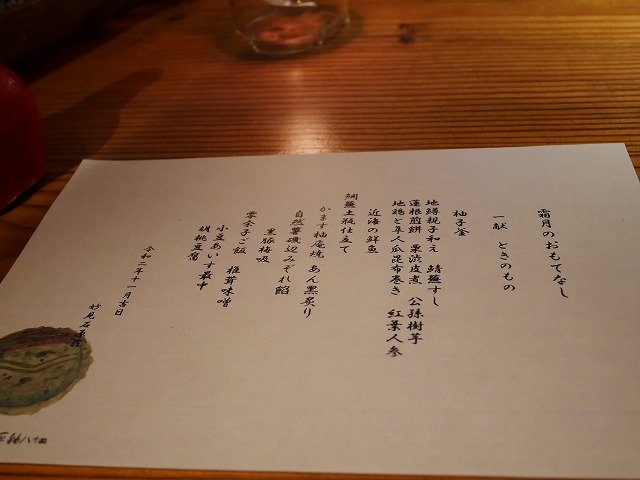 霜月のおもてなし
一献 ときのもの
柚子釜
地鱒親子和え 鯖蕪すし
蓮根煎餅 栗渋皮煮 公孫樹芋
地鶏と隼人瓜昆布巻き 紅葉人参
近海の鮮魚
鯛蕪土瓶仕立て
かます柚庵焼 あん黒炙り
自然薯磯辺みぞれ餡
黒豚梅吸
零余子ご飯 椎茸味噌
小豆あいす最中
胡桃豆腐
令和二年十一月吉日
妙見石原荘